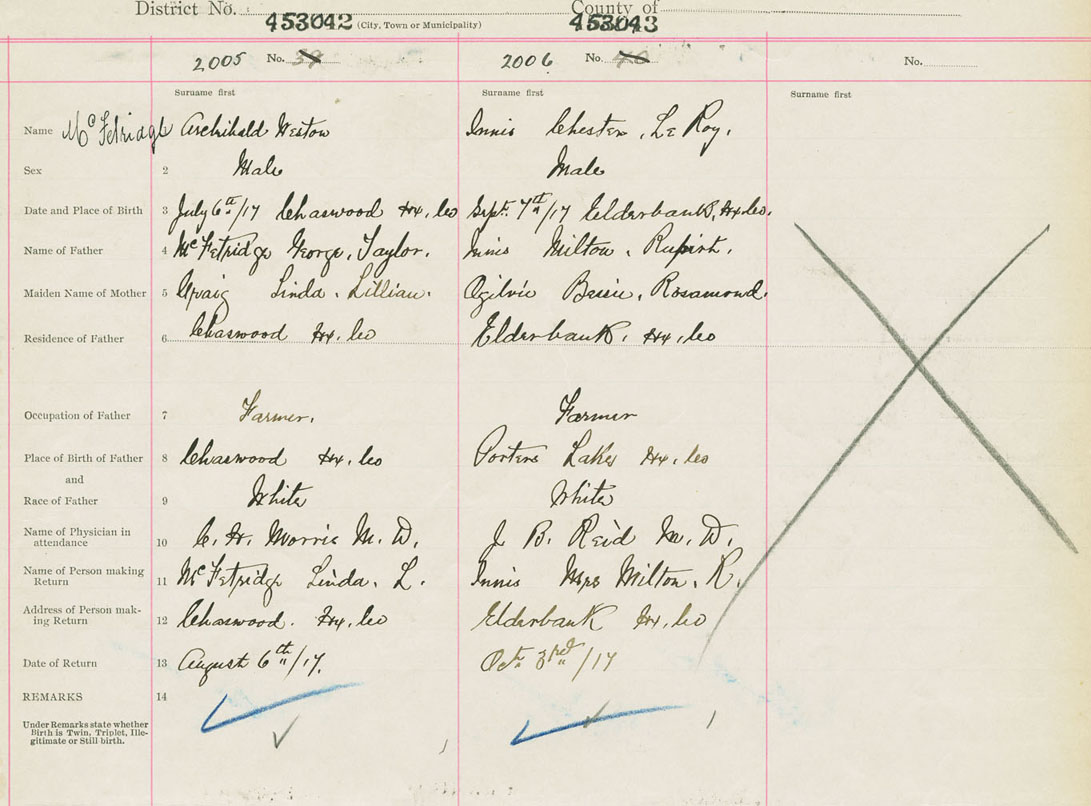 District No. County of
453042 (City, Town or Municipality) 453043
2005 No. 39 2006 No. 40 No.
Surname first Surname first Surname first
Name McFetridge Archibald Weston Innis Chester, Le Roy.
Sex 2 Male Male
Date and Place of Birth 3 July 6th/17 Chaswood Hx, Co Sept. 7th/17 Elderbank, Hx Co.
Name of Father 4 McFetridge George, Taylor. Innis Milton, Rupert.
Maiden Name of Mother 5 Graig Linda. Lillian. Ogilvie Bessie, Rosamond.
Residence of Father 6 Chaswood Hx, Co Elderbank, Hx, Co
Occupation of Father 7 Farmer. Farmer
Place of Birth of Father 8 Chaswood Hx, Co Porters Lake Hx, Co
and
Race of Father 9 White White
Name of Physician in
attendance 10 C. H. Morris M. D. J B. Reid M. D.
Name of Person making
Return 11 McFetridge Linda. L. Innis Mrs Milton, R.
Address of Person mak-
ing Return 12 Chaswood. Hx, Co Elderbank Hx, Co
Date of Return 13 August 6th/17. Oct. 3rd/17
REMARKS 14
Under Remarks state whether
Birth is Twin, Triplet, Ille-
gitimate or Still-birth.